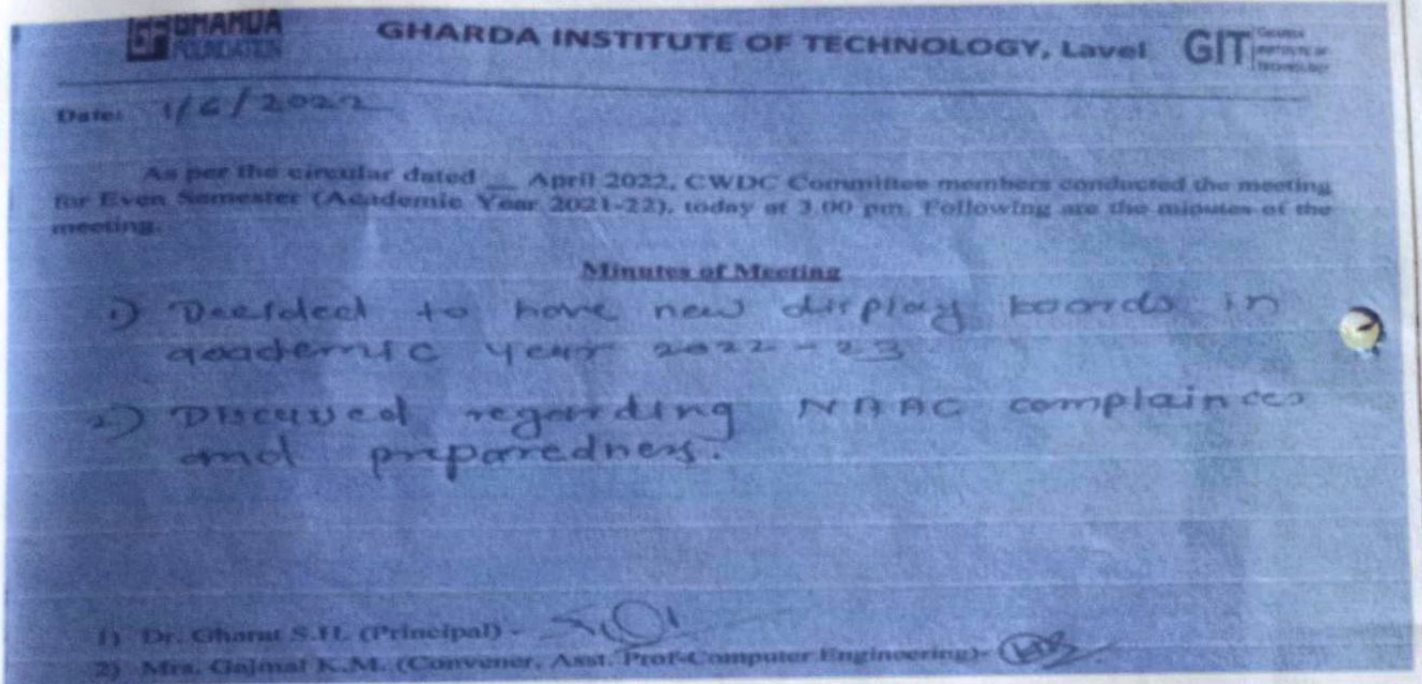 GHARDA FOUNDATION
GHARDA INSTITUTE OF TECHNOLOGY, Lavel
GIT GHARDA INSTITUTE OF TECHNOLOGY
Date: 1/6/2022
As per the circular dated __ April 2022, CWDC Committee members conducted the meeting
for Even Semester (Academic Year 2021-22), today at 3.00 pm. Following are the minutes of the
meeting.
Minutes of Meeting
1) Decided to have new display boards in
academic year 2022-23
2) Discussed regarding NAAC complainces
and preparedness.
1) Dr. Gharat S.H. (Principal) -
2) Mrs. Gajmal K.M. (Convener, Asst. Prof-Computer Engineering)-